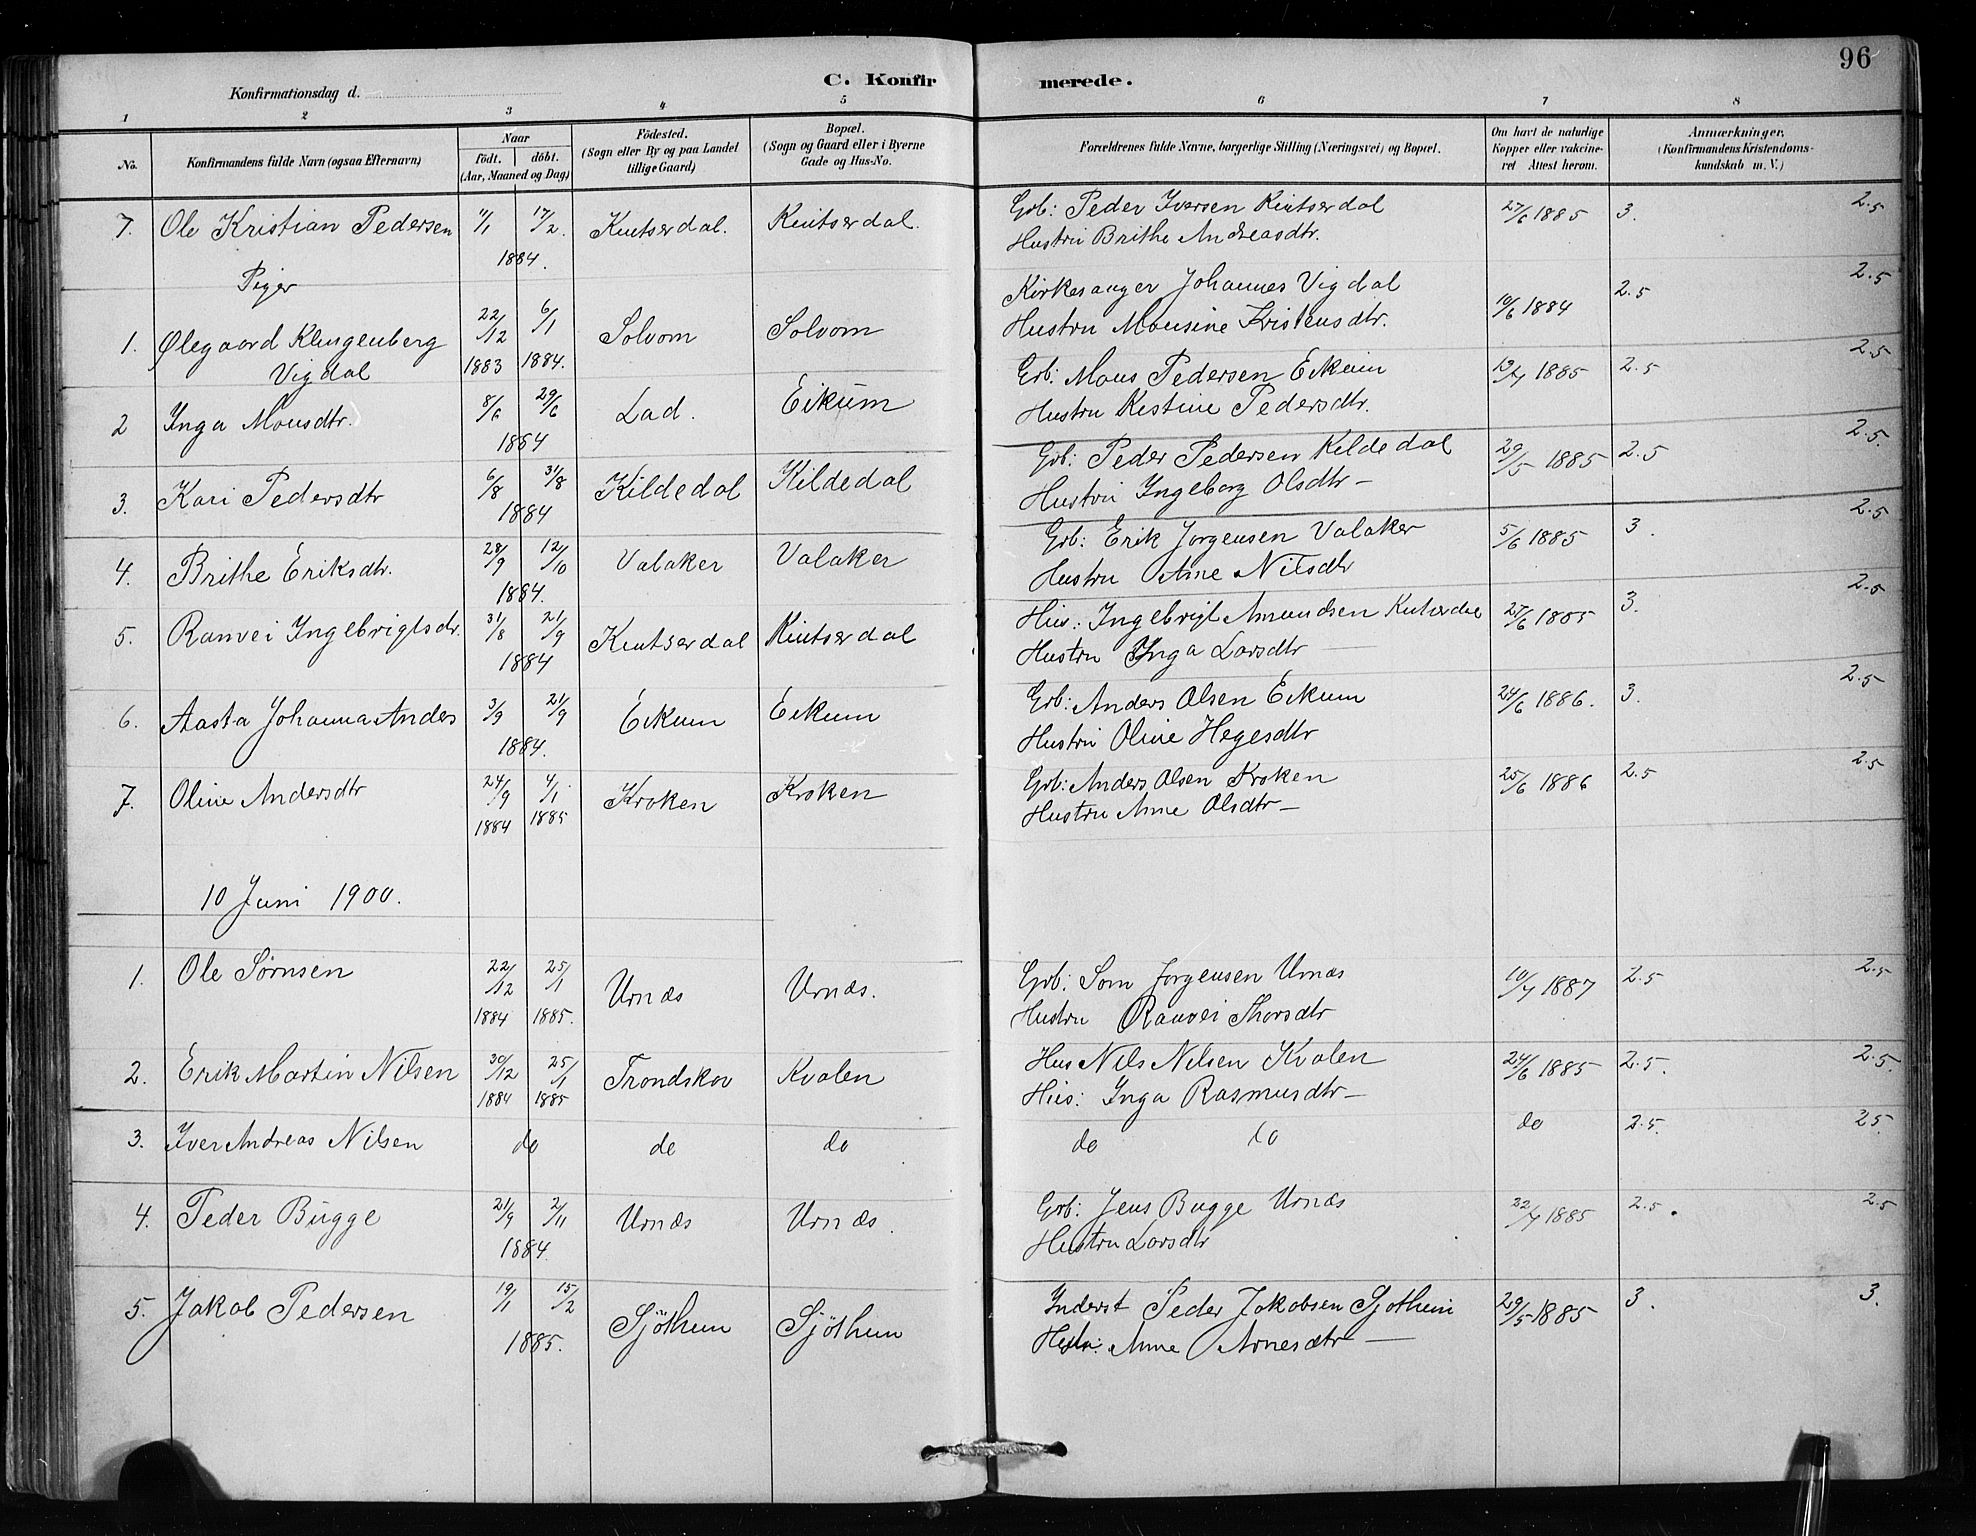 96
C. Konfirmerede.
Konfirmationsdag d.
1 2 3 4 5 6 7 8
No.
Konfirmandens fulde Navn (ogsaa Efternavn)
Naar
födt. döbt.
(Aar, Maaned og Dag)
Födested.
(Sogn eller By og paa Landet
tillige Gaard)
Bopæl.
(Sogn og Gaard eller i Byerne
Gade og Hus-No.
Forældrenes fulde Navne, borgerlige Stilling (Næringsvei) og Bopæl.
Om havt de naturlige
Kopper eller vakcine-
ret Attest herom.
Anmærkninger,
(Konfirmandens Kristendoms-
kundskab m. V.)
7. Ole Kristian Pedersen 11/1 17/2 1884. Kintserdal. Kintserdal. Grb: Peder Iversen Kintserdal 27/6 1885 3. 2.5
Hustru Brithe Andreasdtr.
Piger
1. Ølegaard Klingenberg 22/12 1883 6/1 1884. Solvorn Solvorn Kirkesanger Johannes Vigdal 10/6 1884 2.5 2.5
Vigdal Hustru Monsine Kristensdtr.
2 Inga Monsdtr. 8/6 29/6 1884 Lad. Eikum Grb: Mons Pedersen Eikum 13/7 1885 2.5 2.5
Hustru Kistine Pedersdtr.
3. Kari Pedersdtr 6/8 31/8 1884 Kildedal Kildedal Grb: Peder Pedersen Kildedal 29/5 1885 2.5 2.5.
Hustru Ingeborg Olsdtr —
4. Brithe Eriksdtr. 28/9 12/10 1884. Valaker Valaker Grb: Erik Jorgensen Valaker 5/6 1885 3. 2.5
Hustru Anne Nilsdtr
5. Ranvei Ingebrigtsdr. 31/8 21/9 1884 Kintserdal Kintserdal Hus: Ingebrigt Amundsen Kintserdal 27/6 1885 3. 2.5
Hustru Inga Larsdtr —
6. Aasta Johanna Anders 3/9 21/9 1884. Eikum Eikum Grb: Anders Olsen Eikum 24/6 1886. 3. 2.5
Hustru Oline Hegesdtr
7. Oline Andersdtr 24/9 1884 4/1 1885 Kroken Kroken Grb: Anders Olsen Kroken 25/6 1886 2.5 2.5
Hustru Anne Olsdtr —
10 Juni 1900.
1. Ole Sørnsen 22/12 1884 25/1 1885. Urnæs Urnæs. Grb: Sørn Jorgensen Urnæs 10/7 1887 2.5 2.5
Hustru Ranvei Thorsdtr
2. Erik Martin Nilsen 30/12 1884 25/1 1885 Trondskov Kvalen Hus Nils Nilsen Kvalen 24/6 1885 2.5. 2.5.
Hus: Inga Rasmusdtr —
3. Iver Andreas Nilsen do do do do do do 2.5. 25.
4. Peder Bugge 21/9 2/11 1884. Urnæs Urnæs. Grb: Jens Bugge Urnæs 22/7 1885 2.5. 2.5
Hustru Larsdtr
5. Jakob Pedersen 19/1 15/2 1885. Sjøthun Sjøthun Inderst Peder Jakobsen Sjothun 29/5 1885 3. 3.
Anne Arnesdtr —